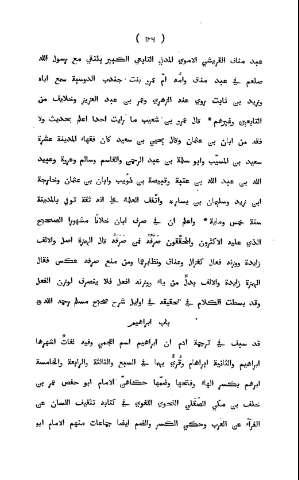 ( ١٢٥ )
عبد مناف القريشي الاموي المدني التابعي الكبير يلتقي مع رسول الله
صلعم في عبد مناف وامه ام عمرو بنت جندب الدوسية سمع اباه
وزيد بن ثابت روي عنه الزهري وعمر بن عبد العزيز وخلايف من
التابعين وغيرهم * قال عمرو بن شعيب ما رايت احدا اعلم بحديث ولا
فقه من ابان بن عثمان وقال يحيي بن سعيد كان فقهاء المدينة عشرة
سعيد بن المسيّب وابو سلمة بن عبد الرحمن والقاسم وسالم وعروة وعبيد
الله بن عبد الله بن عتبة وقبيصة بن ذويب وابان بن عثمان وخارجة
ابن زيد وسليمان بن يساره واتفق العلماء علي انه ثقة توفي بالمدينة
سنة خمس ومائة * واعلم ان في صرف ابان خلافا مشهورا الصحيح
الذي عليه الاكثرون والمحققون صَرفُه فمن صَرَفَه قال الهمزة اصل والالف
زايدة ووزنه فعال كغزال وعناق ونظايرها ومن منع صرفه عكس فقال
الهمزة زايدة والالف بدل من ياء ووزنه افعل فلا ينصرف لوزن الفعل
وقد بسطت الكلام في تحقيقه في اوايل شرح صحيح مسلم رحمه الله
باب ابراهيم
قد سبق في ترجمة ادم ان ابراهيم اسم اعجمي وفيه لغات اشهرها
ابراهيم والثانية ابراهام وقُريَ بهما في السبع والثالثة والرابعة والخامسة
ابرهم بكسر الهاء وفتحها وضمها حكاهن الامام ابو حفص عمر بن
خلف بن مكي الصقلي النحوي اللغوي في كتابه تثقيف اللسان عن
الفراء عن العرب وحكي الكسر والضم ايضا جماعات منهم الامام ابو